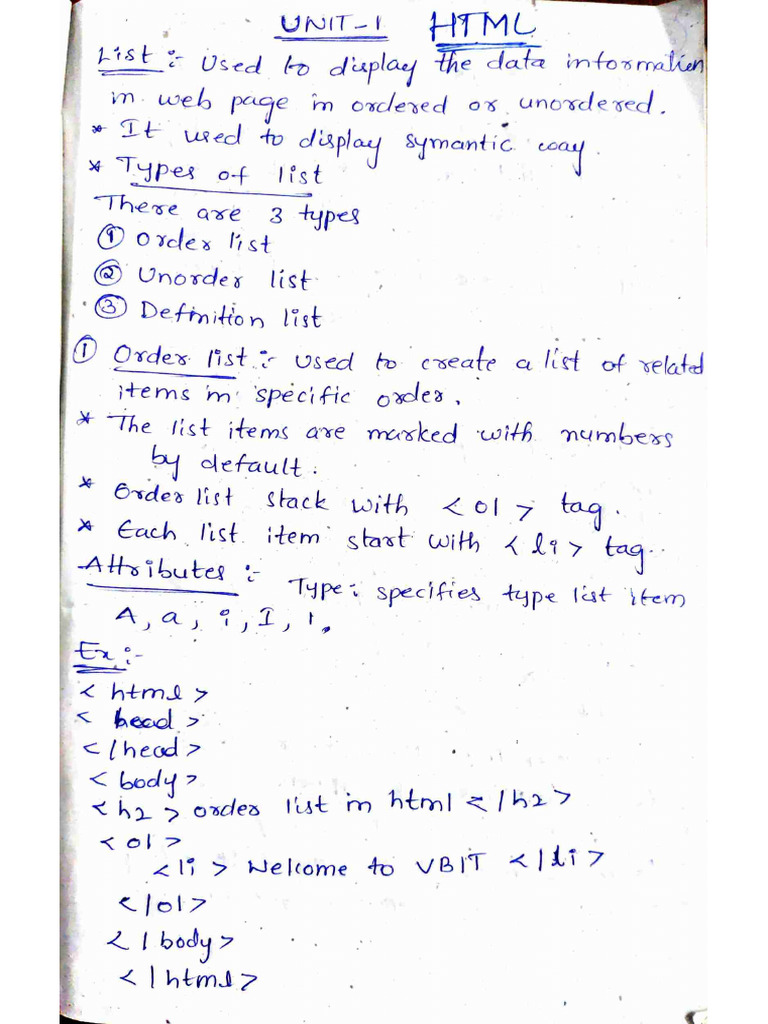 UNIT-1 HTML
List :- Used to display the data information
in web page in ordered or unordered.
* It used to display symantic way.
* Types of list
There are 3 types
① Order list
② Unorder list
③ Definition list
① Order list :- used to create a list of related
items in specific order.
* The list items are marked with numbers
by default.
* Order list stack with <ol> tag.
* Each list item start with <li> tag.
Attributes :- Type: specifies type list item
A, a, i, I, 1.
Ex:-
<html>
<head>
</head>
<body>
<h2> order list in html </h2>
<ol>
<li> Welcome to VBIT </li>
</ol>
</body>
</html>